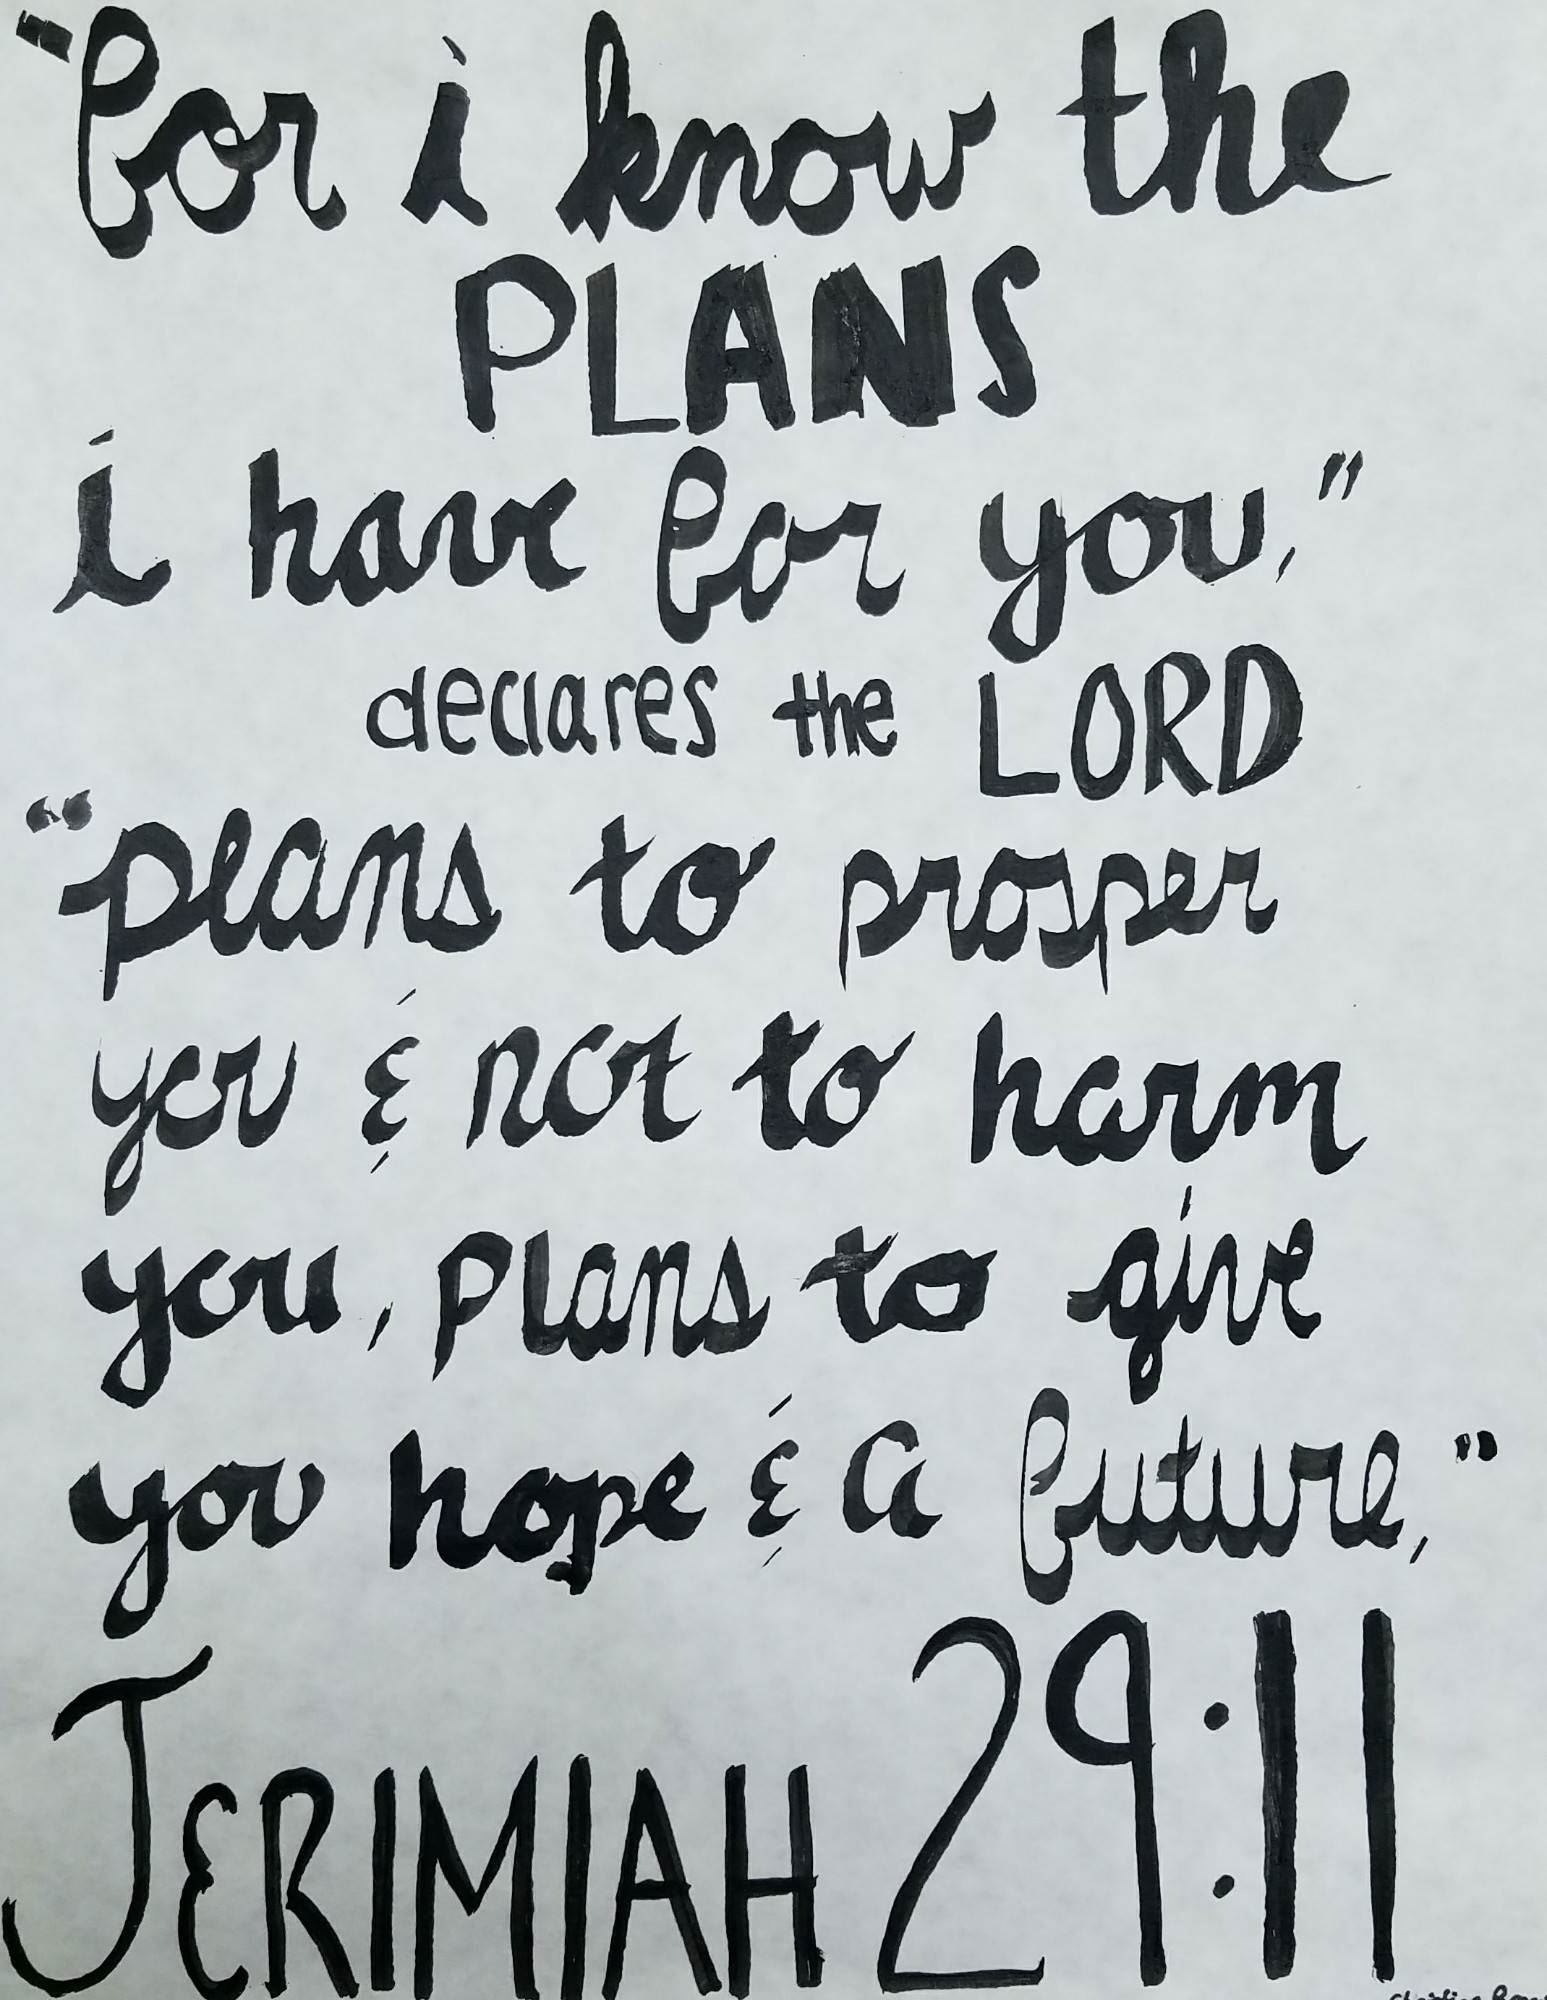 "for i know the
PLANS
i have for you,"
declares the LORD
"plans to prosper
you & not to harm
you, plans to give
you hope & a future,"
JERIMIAH 29:11